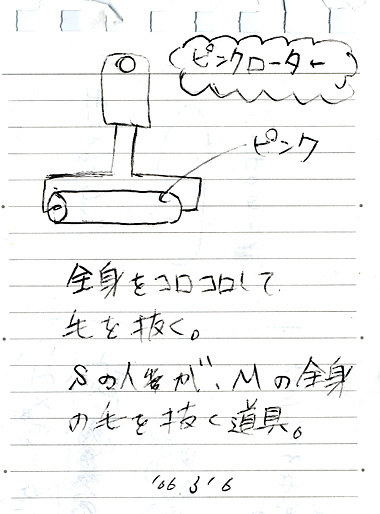 ピンクローター
ピンク
全身をコロコロして
毛を抜く。
Sの人が、Mの全身
の毛を抜く道具。
'06.3.6